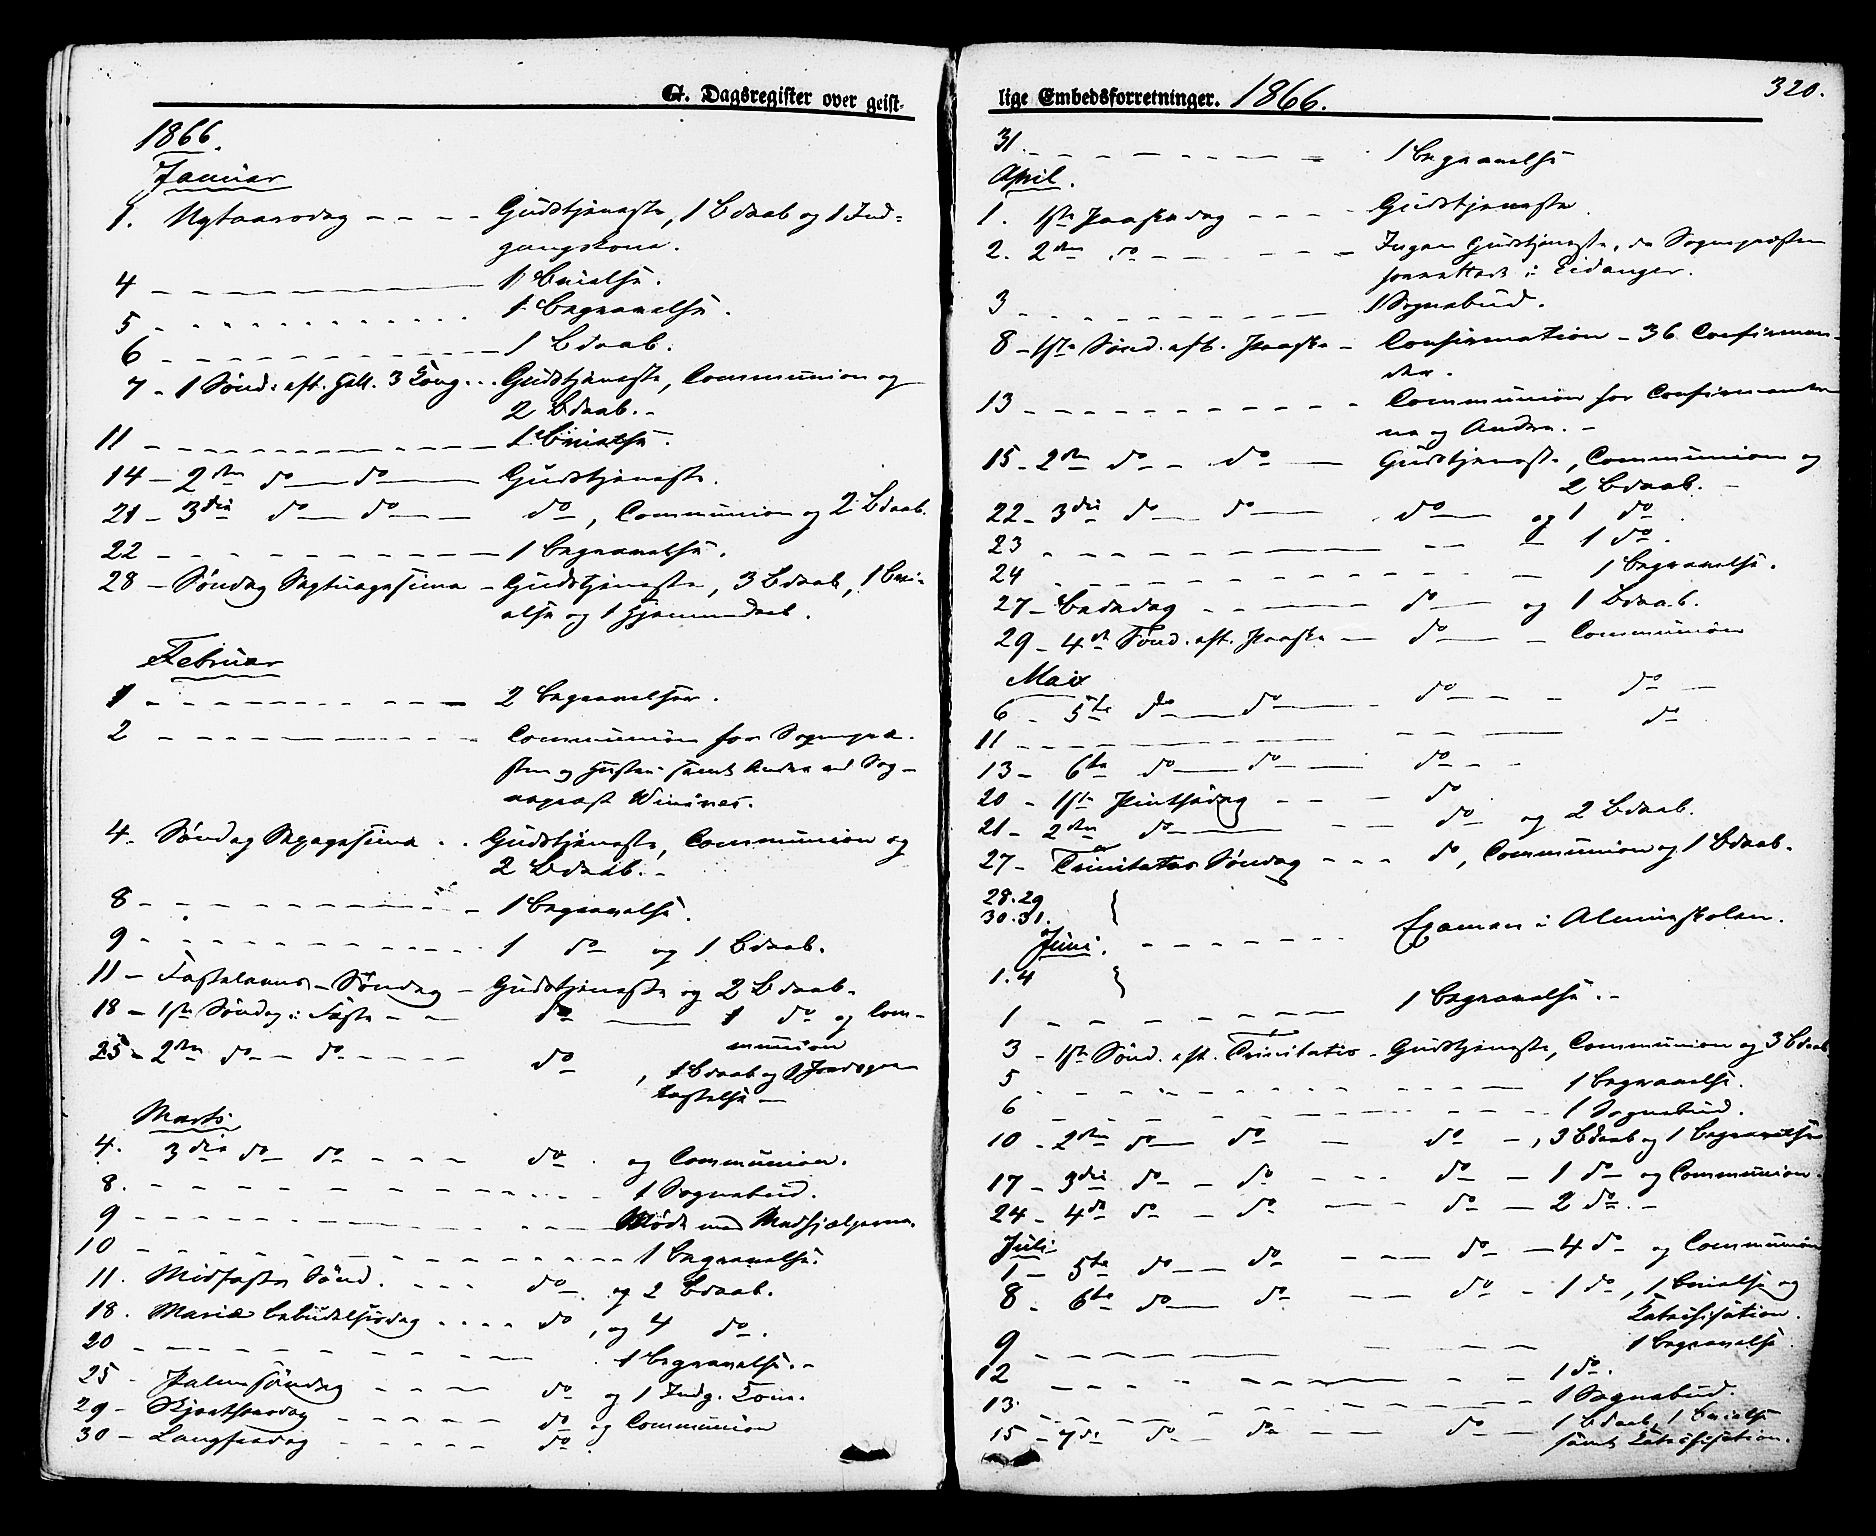 G. Dagsregister over geist-
1866.
Januar
1. Nytaarsdag - - - - Gudstjeneste, 1 Bdaab og 1 Ind-
gangskone.
4 - - - - - 1 Vielse.
5 - - - - - 1 Begravelse.
6 - - - - - 1 Bdaab.
7 - 1 Sønd. eft. Hell. 3 Kong. - - Gudstjeneste, Communion og
2 Bdaab. -
11 - - - - - 1 Vielse.
14 - 2den do - do - Gudstjeneste.
21 - 3die do - do - do, Communion og 2 Bdaab.
22 - - - - - 1 Begravelse.
28 - Søndag Septuagesima - Gudstjeneste, 3 Bdaab, 1 Vi-
else og 1 Hjemmedaab.
Februar
1 - - - - - 2 Begravelser.
2 - - - - - Communion for Sognepræ-
sten og Hustru samt Andre ved Sog-
neprest Winsnes.
4. Søndag Sexagesima - - Gudstjeneste, Communion og
2 Bdaab. -
8 - - - - - 1 Begravelse.
9 - - - - - 1 do og 1 Bdaab.
11 - Fastelavns-Søndag - Gudstjeneste og 2 Bdaab.
18 - 1ste Søndag i Faste - - do - 1 do og Com-
munion
25 - 2den do - do - - - do, 1 Bdaab og 1 Jordspaa-
kastelse -
Marts
4. 3die do do - - - do - og Communion.
8. - - - - - 1 Sognebud.
9 - - - - - Møde med Medhjælperne
10 - - - - - 1 Begravelse.
11. Midfaste Sønd. - - - do - og 2 Bdaab.
18. Mariæ Bebudelsesdag - - - - do, og 4 do.
20 - - - - - 1 Begravelse. -
25 - Palmesøndag - - - - do og 1 Indg. Kone.
29 - Skjærthorsdag - - - - do og Communion
30 - Langfredag - - - - do
lige Embedsforretninger. 1866.
320.
31. - - - - - 1 Begravelse
April.
1. 1ste Paaskedag - - - - Gudstjeneste.
2. 2den do - - - - Ingen Gudstjeneste, da Sognepræsten
forrettede i Eidanger.
3 - - - - - 1 Sognebud.
8 - 1ste Sønd. eft. Paaske - Confirmation - 36 Confirman-
der.
13 - - - - - Communion for Confirmander-
ne og Andre. -
15 - 2den do - do - Gudstjeneste, Communion og
2 Bdaab. -
22 - 3die do - do - do - og 1 do.
23 - - - - - 1 do.
24 - - - - - 1 Begravelse.
27 - Bededag - - - - do - og 1 Bdaab.
29 - 4de Sønd. eft. Paaske - do - - Communion
Mai
6 - 5te do - do - - do - - - do -
11 - - - - - do
13 - 6te do - do - do - - -
20 - 1ste Pintsedag - - - - do
21 - 2den do - - - do - og 2 Bdaab.
27 - Trinitatis Søndag - - - do, Communion og 1 Bdaab.
28. 29
30. 31.
og Juni. - - - - - Examen i Almueskolen.
1. 4
1 - - - - - 1 Begravelse. -
3 - 1ste Sønd. eft. Trinitatis - Gudstjeneste, Communion og 3 Bdaab
5 - - - - - 1 Begravelse.
6 - - - - - 1 Sognebud.
10 - 2den do - do - do -, 3 Bdaab og 1 Begravelse
17 - 3die do - do - - - do - 1 do - og Communion.
24 - 4de do - do - - - do - 2 do. -
Juli
1 - 5te do - - do - - - do - 4 do - og Communion
8 - 6te do - do - - - do - 1 do, 1 Vielse og
Katechisation.
9 - - - - - 1 Begravelse
12 - - - - - 1 do.
13. - - - - - 1 Sognebud.
15 - 7de do - do - - - do - 1 Bdaab, 1 Vielse
samt Katechisation.